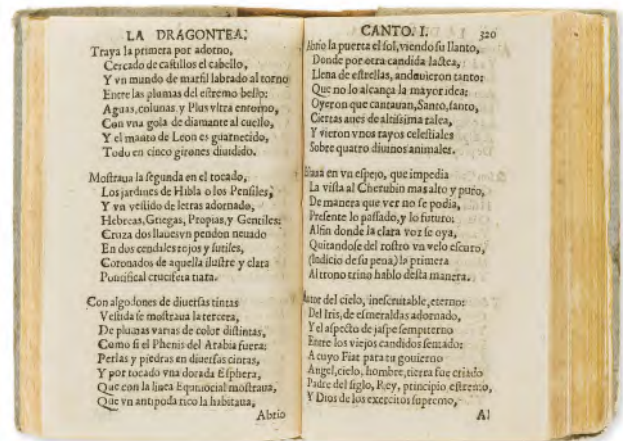 LA DRAGONTEA.
Traya la primera por adorno,
Cercado de castillos el cabello,
Y vn mundo de marfil labrado al torno
Entre las plumas del estremo bello:
Aguas, colunas, y Plus vltra entorno,
Con vna gola de diamante al cuello,
Y el manto de Leon es guarnecido,
Todo en cinco girones diuidido.
Mostraua la segunda en el tocado,
Los jardines de Hibla o los Pensiles,
Y vn vestido de letras adornado,
Hebreas, Griegas, Propias, y Gentiles:
Cruza dos llaues vn pendon neuado
En dos cendales rojos y sutiles,
Coronados de aquella ilustre y clara
Pontifical crucifera tiara.
Con algodones de diuersas tintas
Vestida se mostraua la tercera,
De plumas varias de color distintas,
Como si el Phenis del Arabia fuera:
Perlas y piedras en diuersas cintas,
Y por tocado vna dorada Esphera,
Que con la linea Equinocial mostraua,
Que vn antipoda rico la habitaua,
Abrio
CANTO. I.
320
Abrio la puerta el sol, viendo su llanto,
Donde por otra candida lactea,
Llena de estrellas, anduuieron tanto:
Que no lo alcança la mayor idea:
Oyeron que cantauan, Santo, santo,
Ciertas aues de altissima ralea,
Y vieron vnos rayos celestiales
Sobre quatro diuinos animales.
en vn espejo, que impedia
La vista al Cherubin mas alto y puro,
De manera que ver no se podia,
Presente lo passado, y lo futuro:
Alfin donde la clara voz se oya,
Quitandose del rostro vn velo escuro,
(Indicio de su pena) la primera
Al trono trino hablo desta manera.
Autor del cielo, inescrutable, eterno:
Del Iris, de esmeraldas adornado,
Y el aspecto de jaspe sempiterno
Entre los viejos candidos sentado:
A cuyo Fiat para tu gouierno
Angel, cielo, hombre, tierra fue criado
Padre del siglo, Rey, principio estremo,
Y Dios de los exercitos supremo,
Al